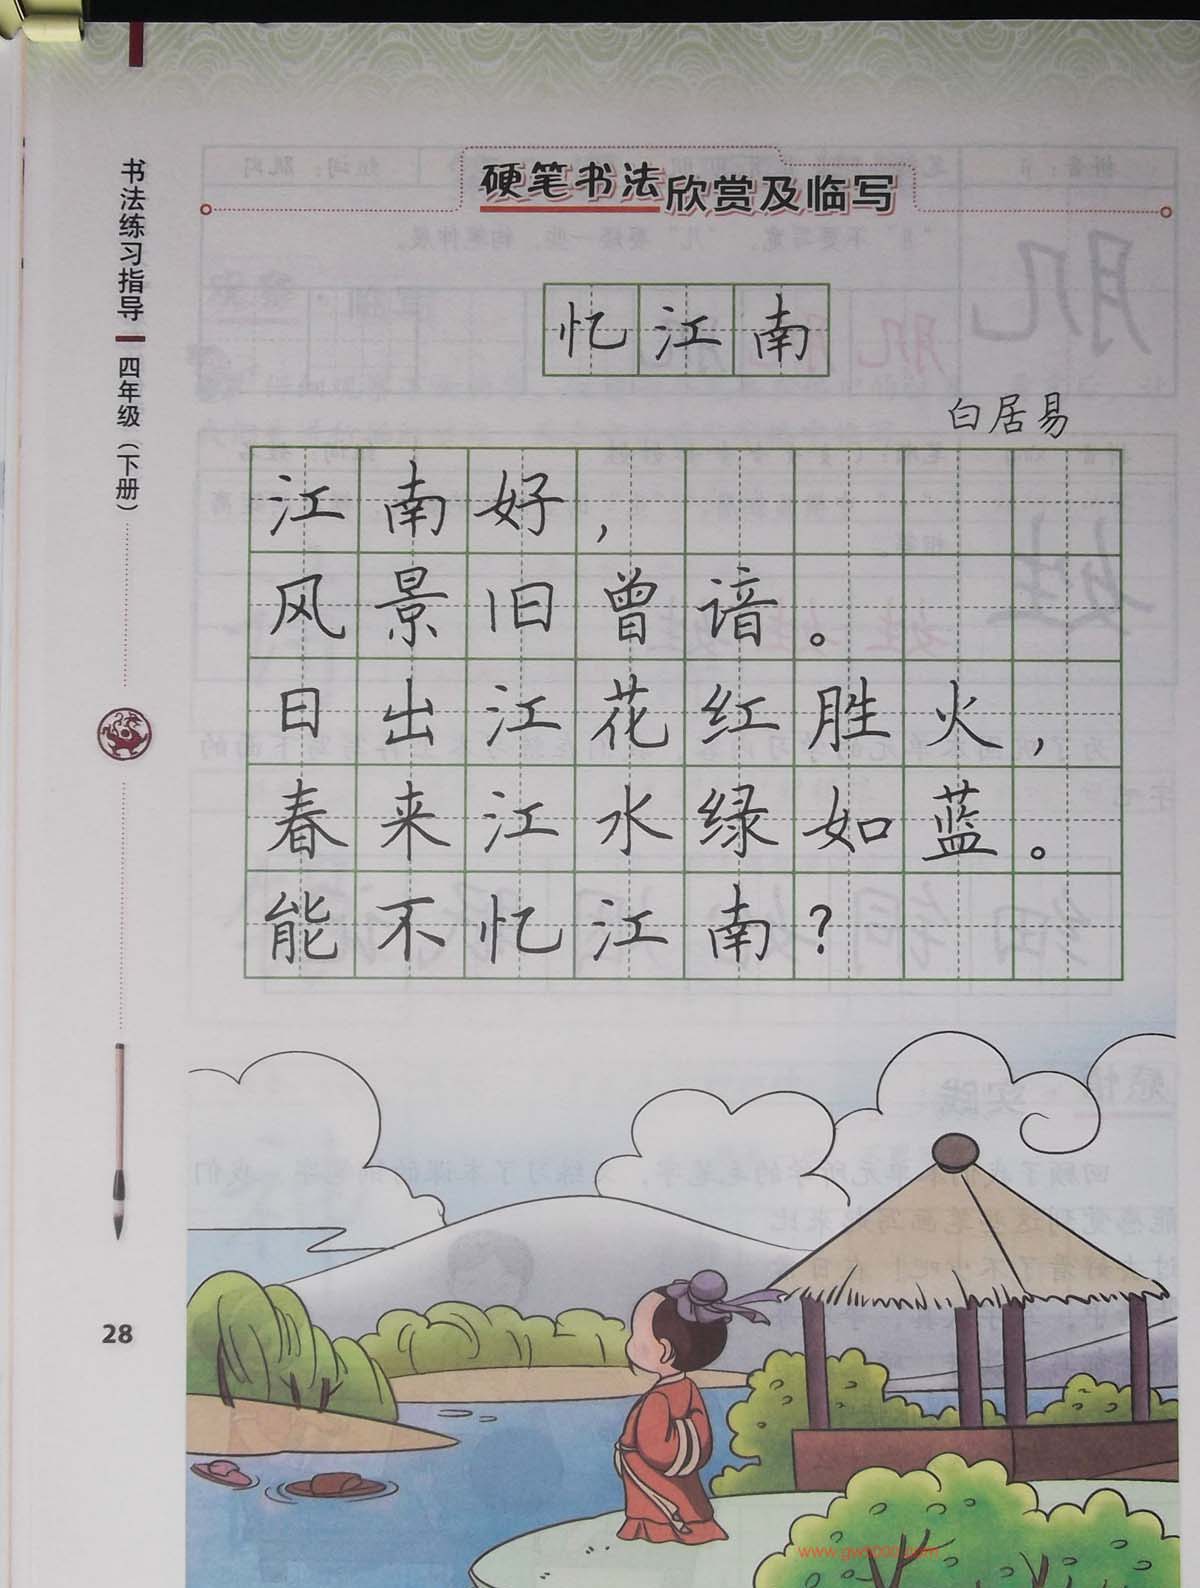 书法练习指导
四年级（下册）
硬笔书法欣赏及临写
忆江南
白居易
江南好，
风景旧曾谙。
日出江花红胜火，
春来江水绿如蓝。
能不忆江南？
28